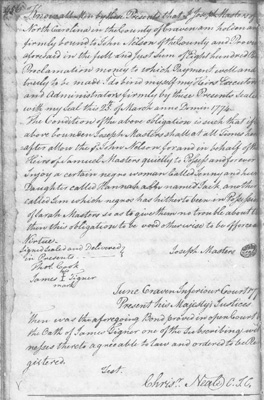 Know all Men by these Presents that I Joseph Masters of
North Carolina in the County of Craven am holden and
firmly bound to John Nelson of the County and Province
aforesaid in the full and just Sum of Eight hundred
Proclamation money to which Payment well and
truly to be made I do bind myself my Heirs Executors
and Administrators firmly by these Presents Sealed
with my Seal this 22d of March anno Domini 1774
The Condition of the above obligation is such that if
above bounden Joseph Masters shall at all Times here
after allow the sd John Nelson for and in behalf of the
Heirs of Samuel Masters quietly to Possess and for ever
Injoy a certain negro woman Called Jenny and her
Daughter called Hannah also named Jack another
called Sen which negros has hitherto been in Possession
of Sarah Masters so as to give them no trouble about
then this obligation to be void otherwise to be of force and
Virtue.
Signed Sealed and Delivered
in Presents
Joseph Masters
Thos Cook
James I Signer
mark
June Craven Inferiour Court 177
Present his Majestys Justices
Then was the aforegoing Bond proved in open Court
the Oath of James Signer one of the Subscribing wit
nesses thereto agreeable to law and ordered to be Re
gistered.
Test.
Chrisr. Neale C.I.C.